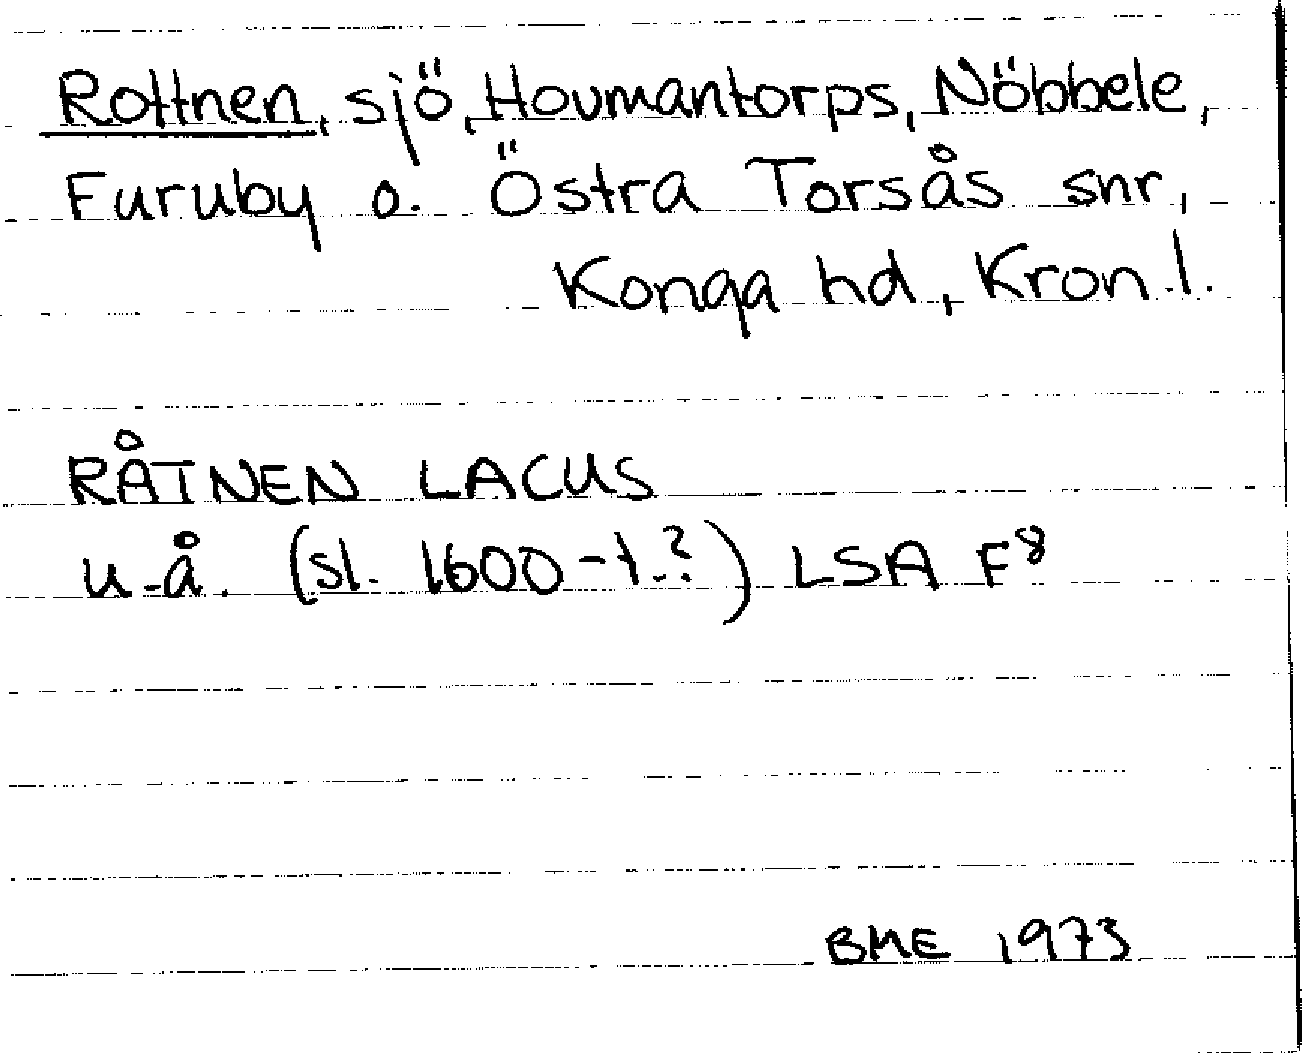 Rottnen, sjö, Hovmantorps, Nöbbele,
Furuby o. Östra Torsås snr,
Konga hd, Kron.l.
RÅTNEN LACUS
u.å. (sl. 1600-t.?) LSA F⁸
BME 1973